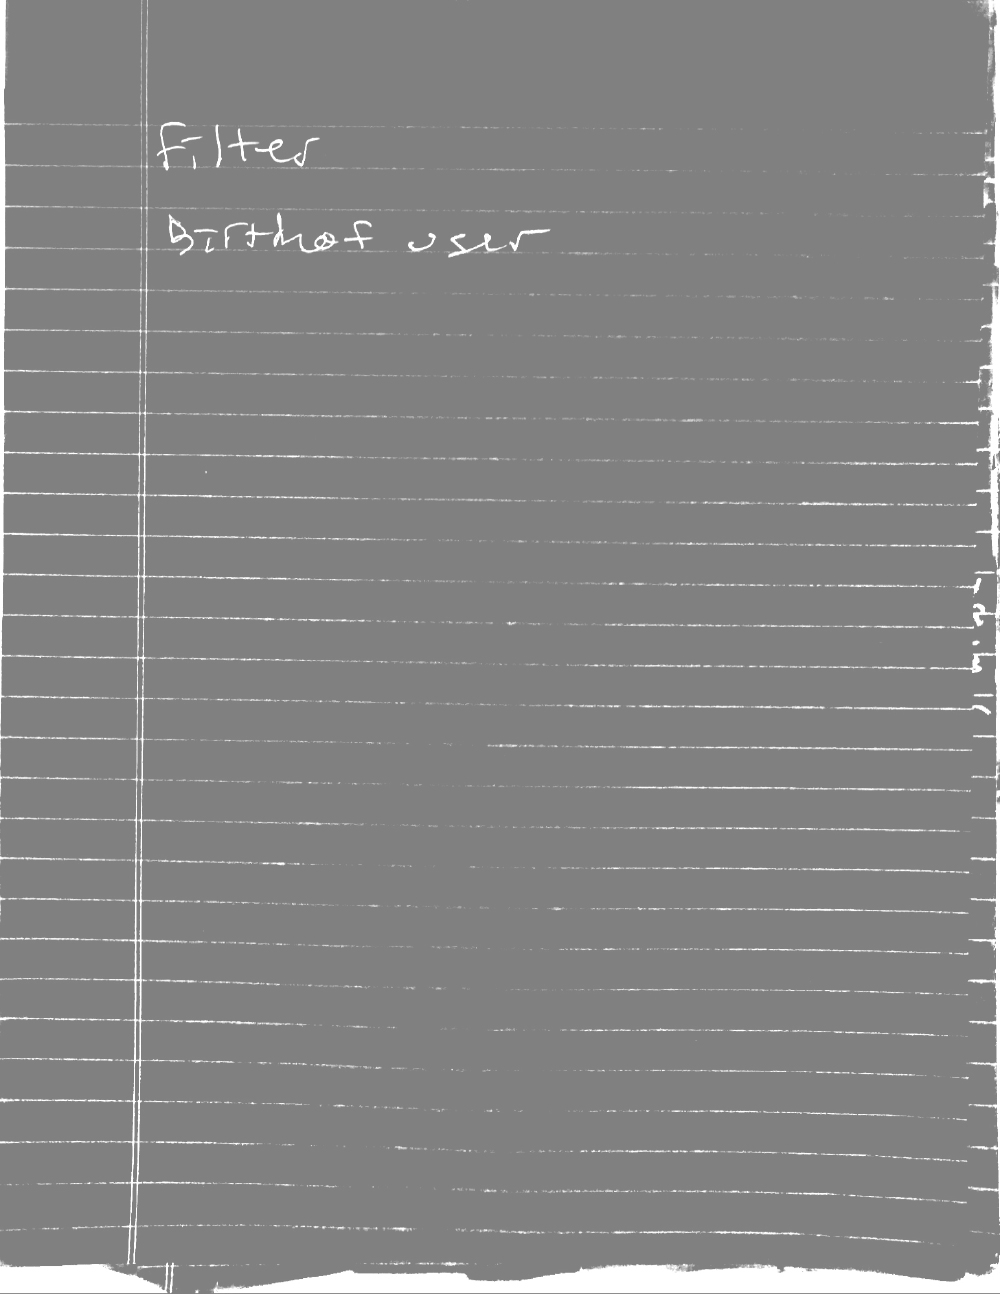 Filter
Birth of user